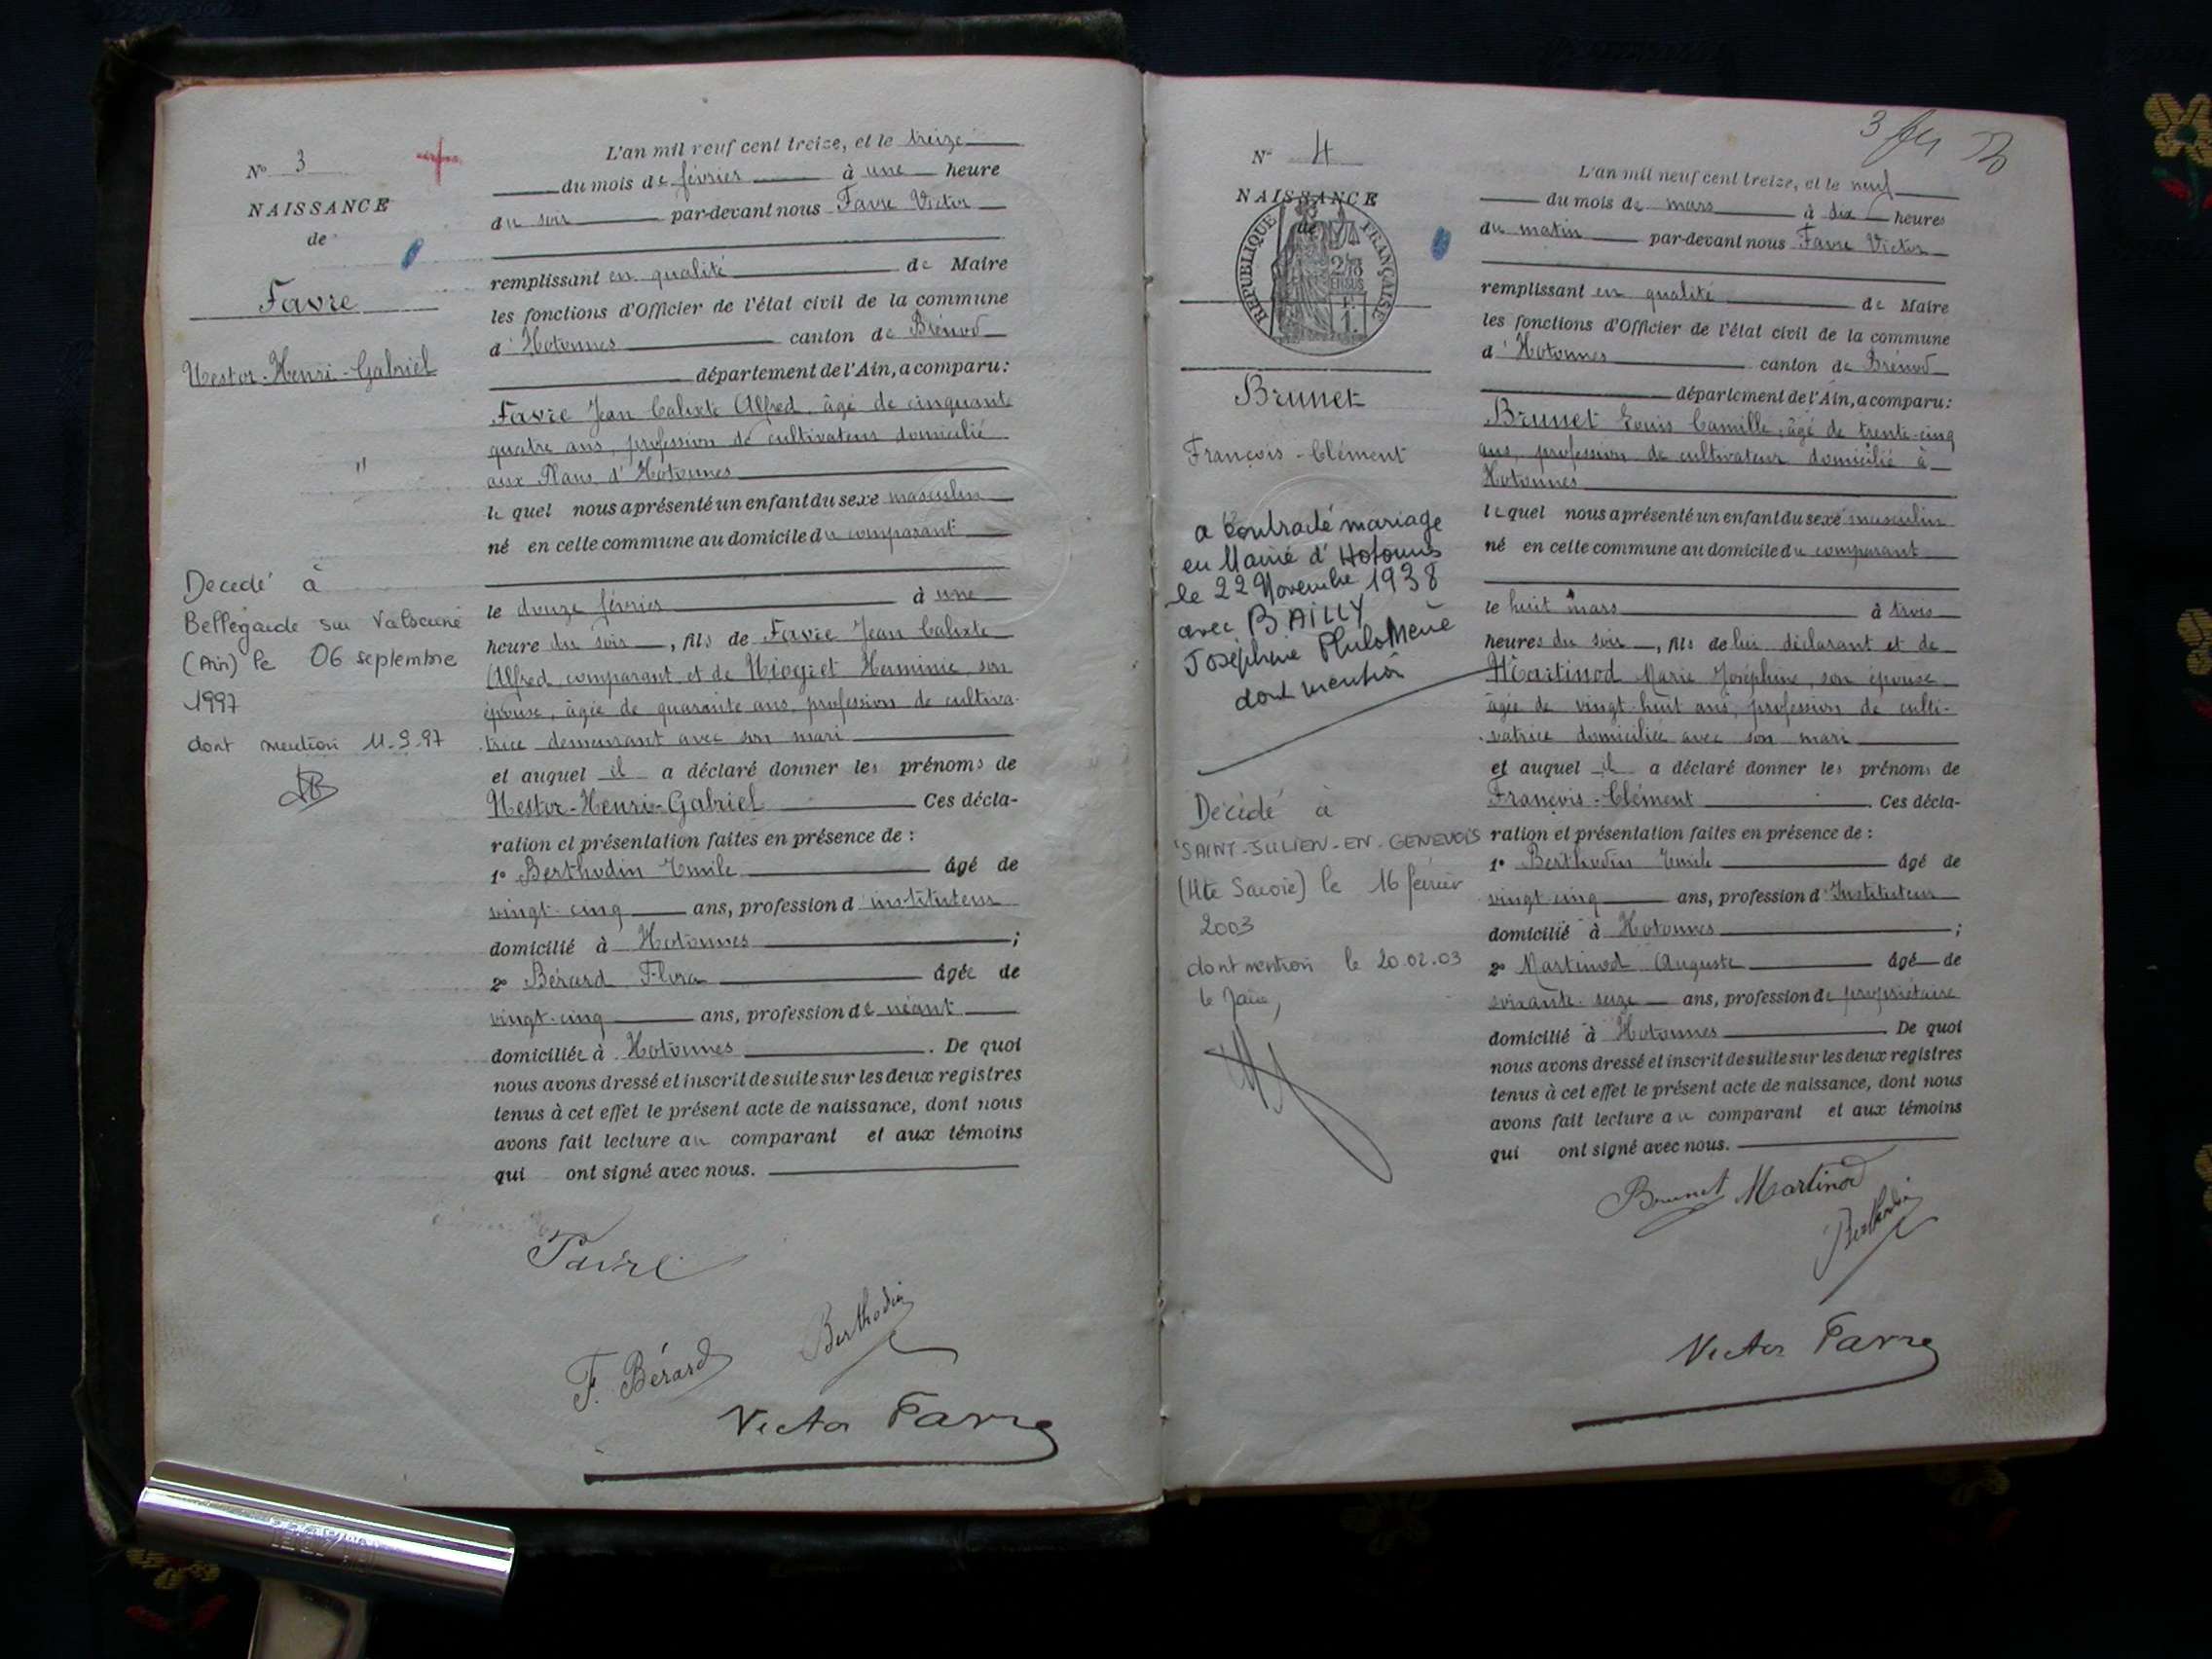 N° 3
NAISSANCE
de
Favre
Nestor-Henri-Gabriel
"
Decedé à
Bellegarde sur Valserine
(Ain) le 06 septembre
1997
dont mention 11.9.97
L'an mil neuf cent treize, et le treize
du mois de février à une heure
du soir par-devant nous Favre Victor
remplissant en qualité de Maire
les fonctions d'Officier de l'état civil de la commune
d'Hotonnes canton de Brénod
département de l'Ain, a comparu:
Favre Jean Calixte Alfred, âgé de cinquante
quatre ans, profession de cultivateur domicilié
aux Plans d'Hotonnes
lequel nous a présenté un enfant du sexe masculin
né en cette commune au domicile du comparant
le douze février à une
heure du soir, fils de Favre Jean Calixte
Alfred, comparant et de Niogret Herminie, son
épouse, âgée de quarante ans, profession de cultiva-
trice demeurant avec son mari
et auquel il a déclaré donner les prénoms de
Nestor-Henri-Gabriel Ces décla-
ration et présentation faites en présence de :
1° Berthodin Emile âgé de
vingt-cinq ans, profession d'instituteur
domicilié à Hotonnes ;
2° Bérard Flora âgée de
vingt-cinq ans, profession de néant
domiciliée à Hotonnes . De quoi
nous avons dressé et inscrit de suite sur les deux registres
tenus à cet effet le présent acte de naissance, dont nous
avons fait lecture au comparant et aux témoins
qui ont signé avec nous.
Favre
F. Bérard Berthodin
Victor Favre
N° 4
NAISSANCE
de
RÉPUBLIQUE FRANÇAISE
Brunet
François-Clément
a contracté mariage
en Mairie d'Hotonnes
le 22 Novembre 1938
avec BAILLY
Joséphine Philomène
dont mention
Décédé à
SAINT-JULIEN-EN-GENEVOIS
(Hte Savoie) le 16 février
2003
dont mention le 20.02.03
le Maire,
L'an mil neuf cent treize, et le neuf
du mois de mars à dix heures
du matin par-devant nous Favre Victor
remplissant en qualité de Maire
les fonctions d'Officier de l'état civil de la commune
d'Hotonnes canton de Brénod
département de l'Ain, a comparu:
Brunet Louis Camille, âgé de trente-cinq
ans, profession de cultivateur domicilié à
Hotonnes
lequel nous a présenté un enfant du sexe masculin
né en cette commune au domicile du comparant
le huit mars à trois
heures du soir, fils de lui déclarant et de
Martinod Marie Joséphine, son épouse
âgée de vingt-huit ans, profession de culti-
vatrice domiciliée avec son mari
et auquel il a déclaré donner les prénoms de
François-Clément . Ces décla-
ration et présentation faites en présence de :
1° Berthodin Emile âgé de
vingt-cinq ans, profession d'Instituteur
domicilié à Hotonnes ;
2° Martinod Auguste âgé de
soixante-seize ans, profession de propriétaire
domicilié à Hotonnes . De quoi
nous avons dressé et inscrit de suite sur les deux registres
tenus à cet effet le présent acte de naissance, dont nous
avons fait lecture au comparant et aux témoins
qui ont signé avec nous.
Brunet Martinod
Berthodin
Victor Favre